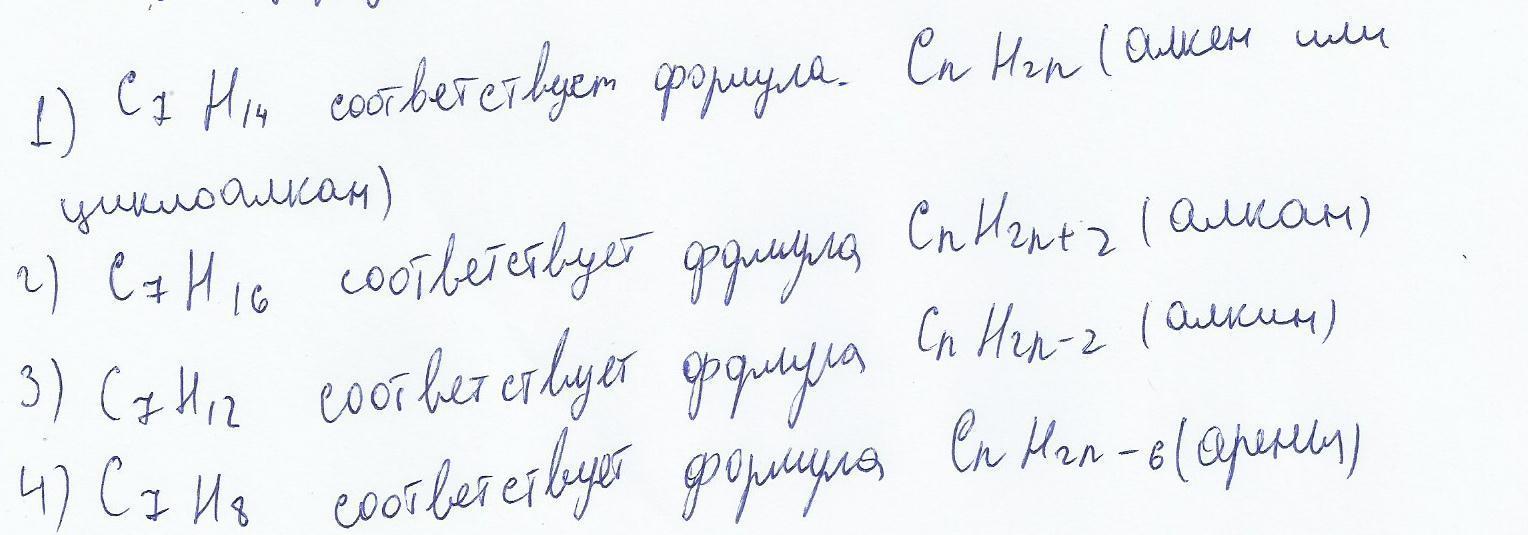 1) C₇H₁₄ соответствует формула. CₙH₂ₙ (алкен или
циклоалкан)
2) C₇H₁₆ соответствует формула CₙH₂ₙ₊₂ (алкан)
3) C₇H₁₂ соответствует формула CₙH₂ₙ₋₂ (алкин)
4) C₇H₈ соответствует формула CₙH₂ₙ₋₆ (арены)